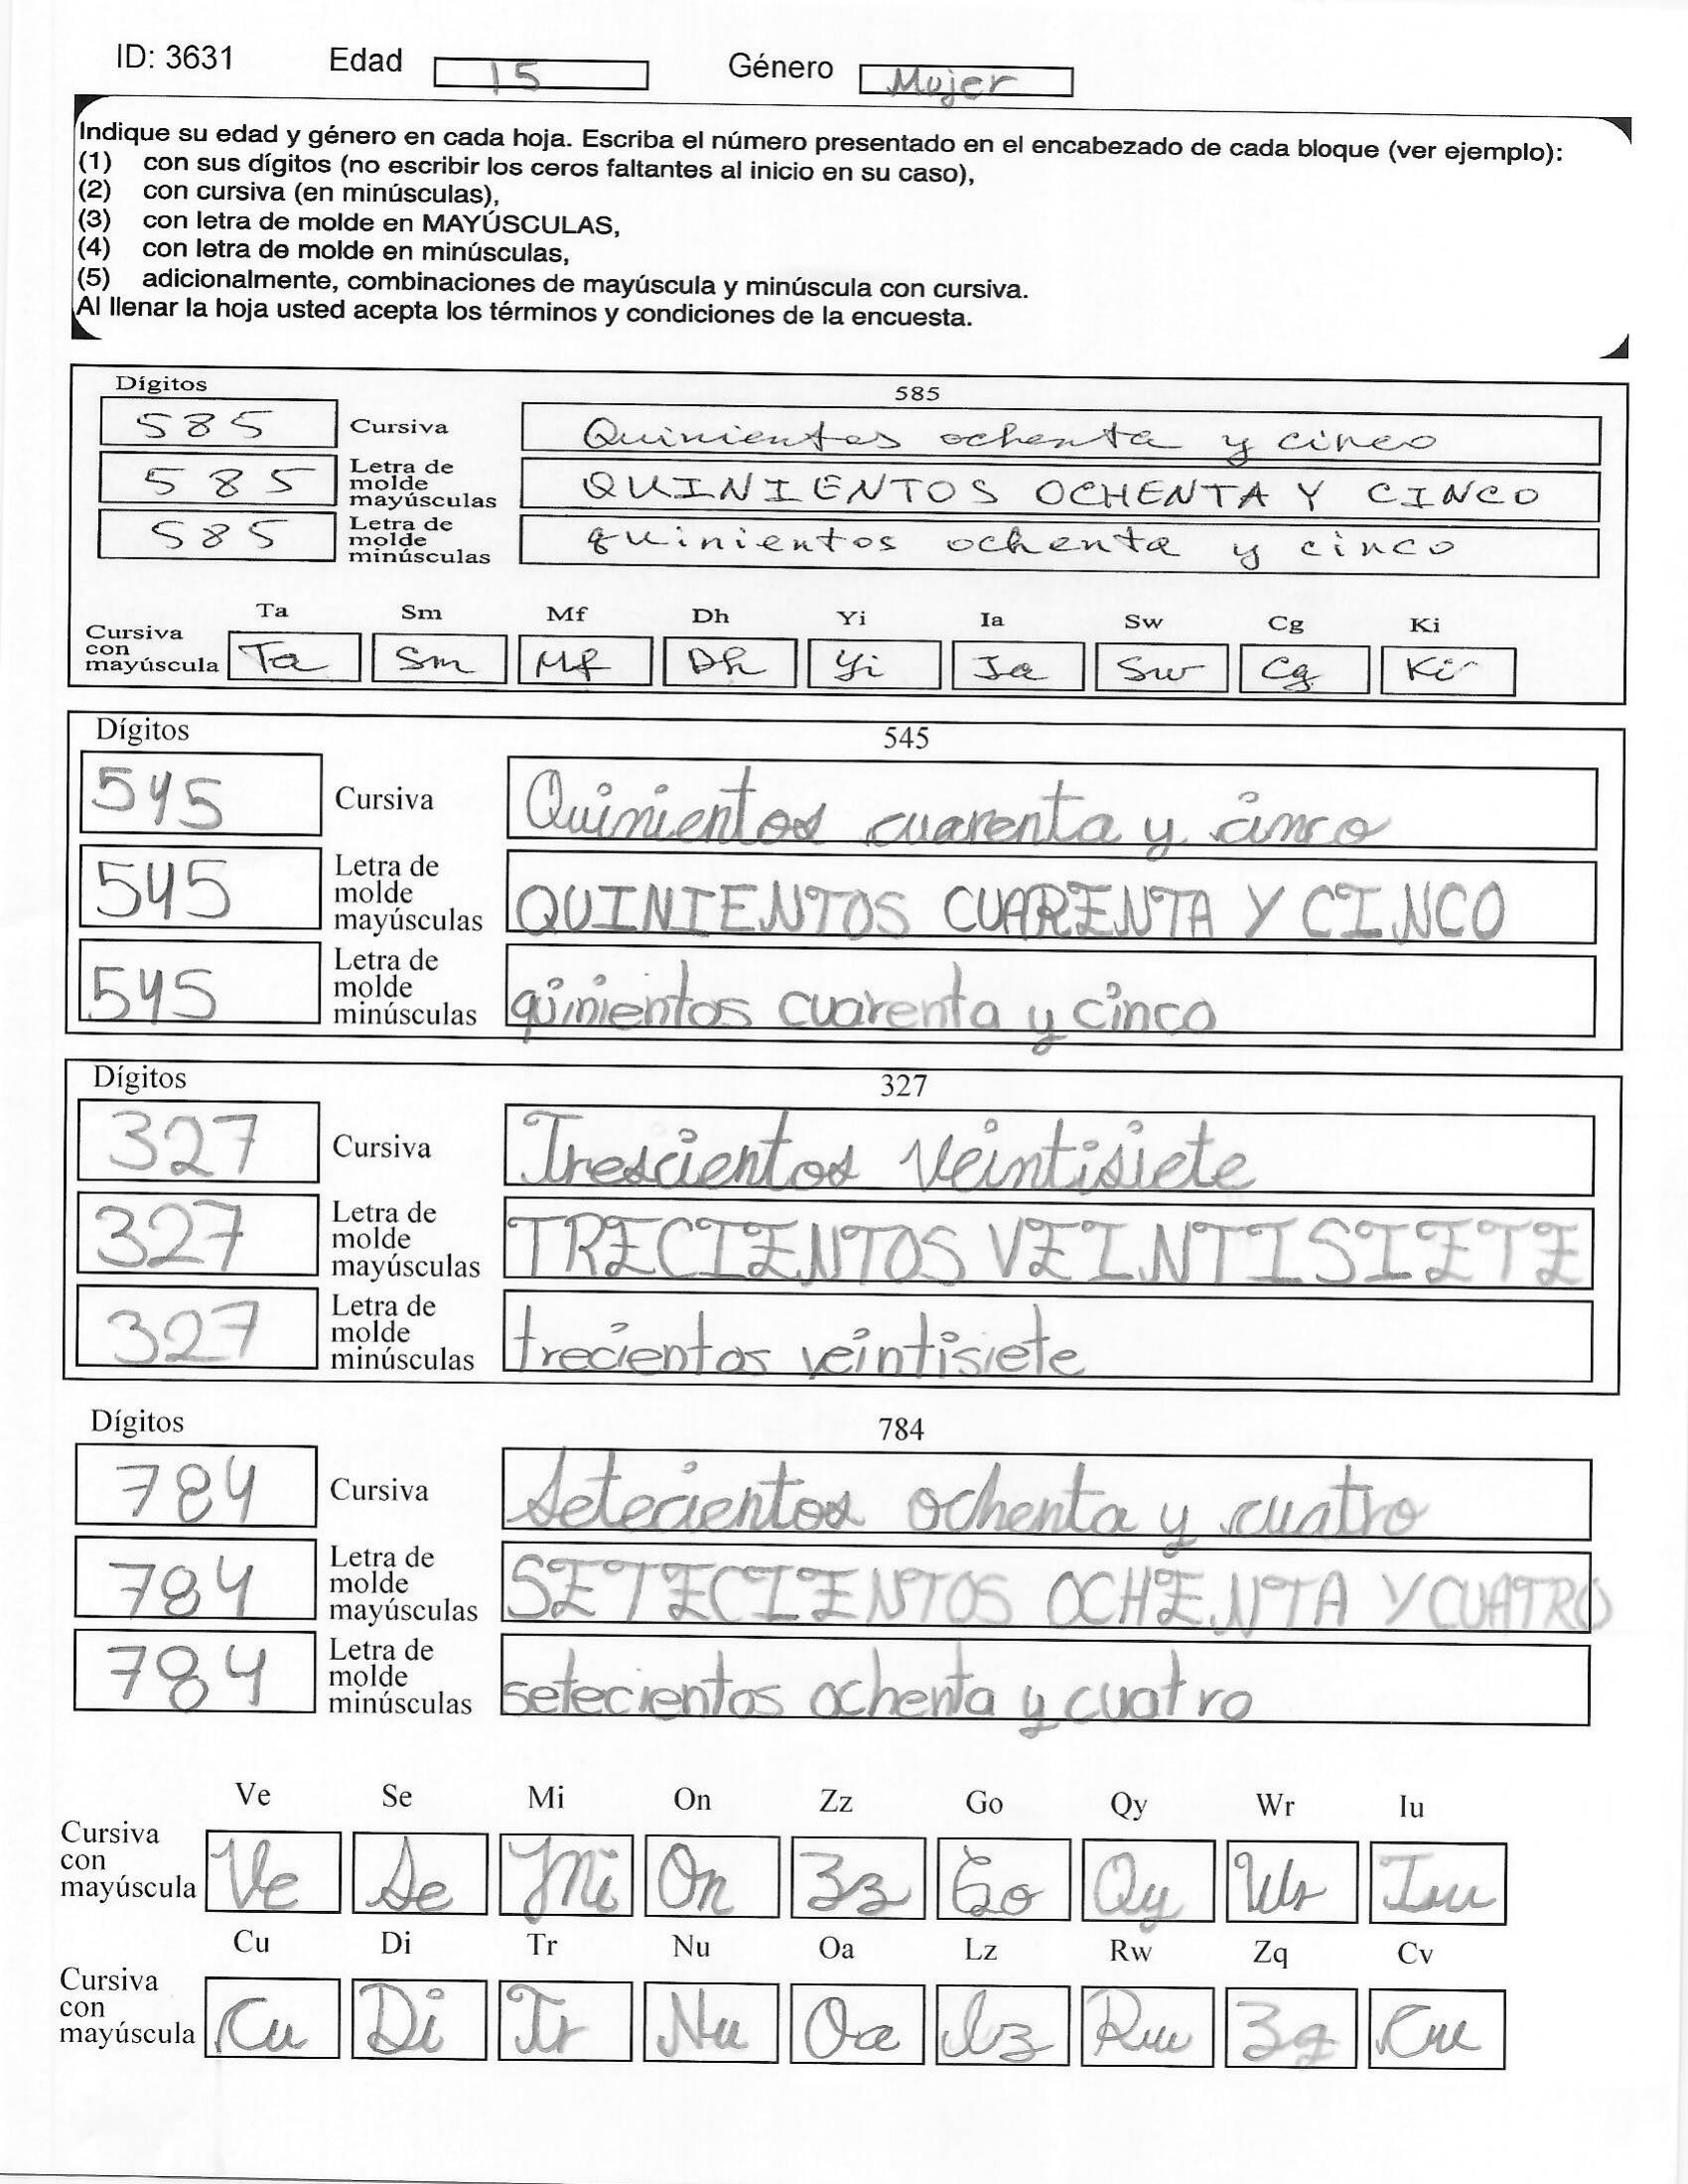 ID: 3631 Edad 15 Género Mujer
Indique su edad y género en cada hoja. Escriba el número presentado en el encabezado de cada bloque (ver ejemplo):
(1) con sus dígitos (no escribir los ceros faltantes al inicio en su caso),
(2) con cursiva (en minúsculas),
(3) con letra de molde en MAYÚSCULAS,
(4) con letra de molde en minúsculas,
(5) adicionalmente, combinaciones de mayúscula y minúscula con cursiva.
Al llenar la hoja usted acepta los términos y condiciones de la encuesta.
Dígitos 585
585 Cursiva Quinientos ochenta y cinco
585 Letra de molde mayúsculas QUINIENTOS OCHENTA Y CINCO
585 Letra de molde minúsculas quinientos ochenta y cinco
Ta Sm Mf Dh Yi Ia Sw Cg Ki
Cursiva con mayúscula Ta Sm Mf Dh Yi Ia Sw Cg Ki
Dígitos 545
545 Cursiva Quinientos cuarenta y cinco
545 Letra de molde mayúsculas QUINIENTOS CUARENTA Y CINCO
545 Letra de molde minúsculas quinientos cuarenta y cinco
Dígitos 327
327 Cursiva Trescientos veintisiete
327 Letra de molde mayúsculas TRECIENTOS VEINTISIETE
327 Letra de molde minúsculas trecientos veintisiete
Dígitos 784
784 Cursiva Setecientos ochenta y cuatro
784 Letra de molde mayúsculas SETECIENTOS OCHENTA Y CUATRO
784 Letra de molde minúsculas setecientos ochenta y cuatro
Ve Se Mi On Zz Go Qy Wr Iu
Cursiva con mayúscula Ve Se Mi On Zz Go Qy Wr Iu
Cu Di Tr Nu Oa Lz Rw Zq Cv
Cursiva con mayúscula Cu Di Tr Nu Oa Lz Rw Zq Cv